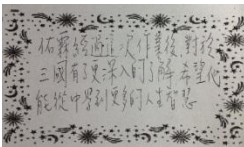 佑霖經過上次作業後 對於
三國有了更深入的了解 希望他
能從中學到更多的人生智慧